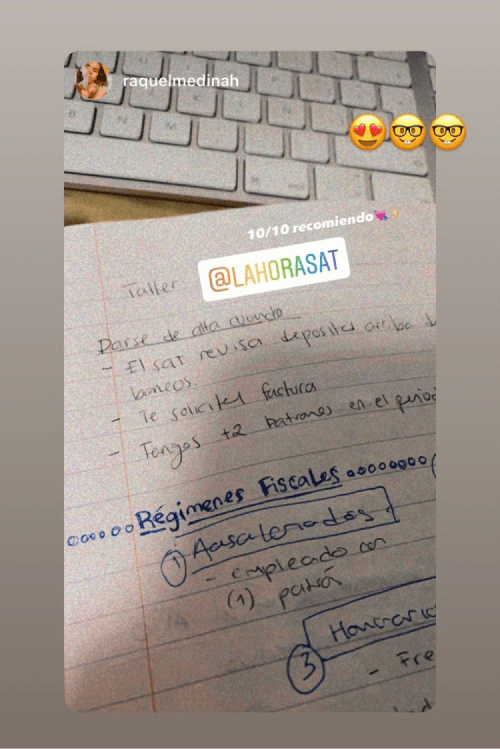 raquelmedinah
10/10 recomiendo
Taller @LAHORASAT
Darse de alta cuando
- El SAT revisa depositos arriba
bancos.
- Te solicitel factura
- Tengas +2 Patrones en el period
Régimenes Fiscales
1 Aasalariados
- empleado con
(1) patrón
3 Honorario
- Fre